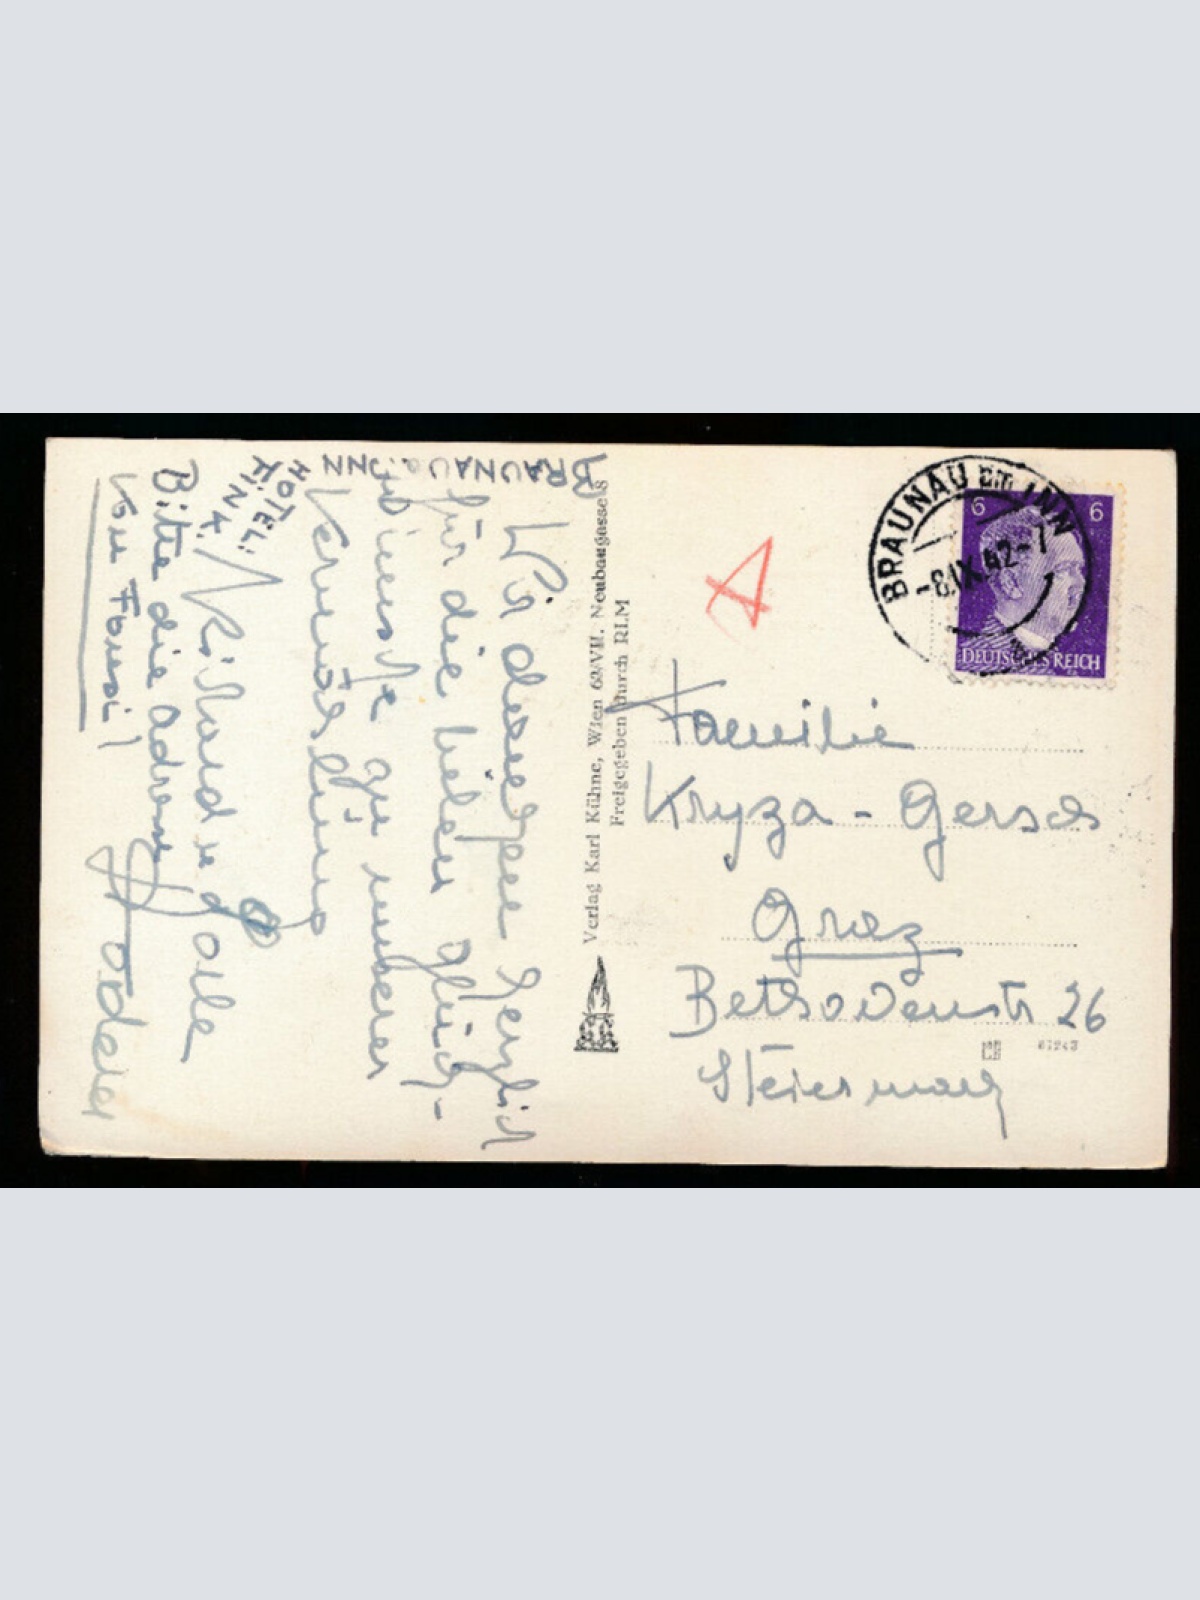 BRAUNAU a. INN
HOTEL:
FINK.
Wir danken herzlich
für die vielen Glück-
wünsche zu unserer
Vermählung
Bitte die Adresse
von Foussi!
BRAUNAU am INN
-8.IX.42-7
6 6
DEUTSCHES REICH
Familie
Kryza - Gersch
Graz
Steiermark
26
Verlag Karl Kühne, Wien 62/VII. Neubaugasse 8
Freigegeben durch RLM